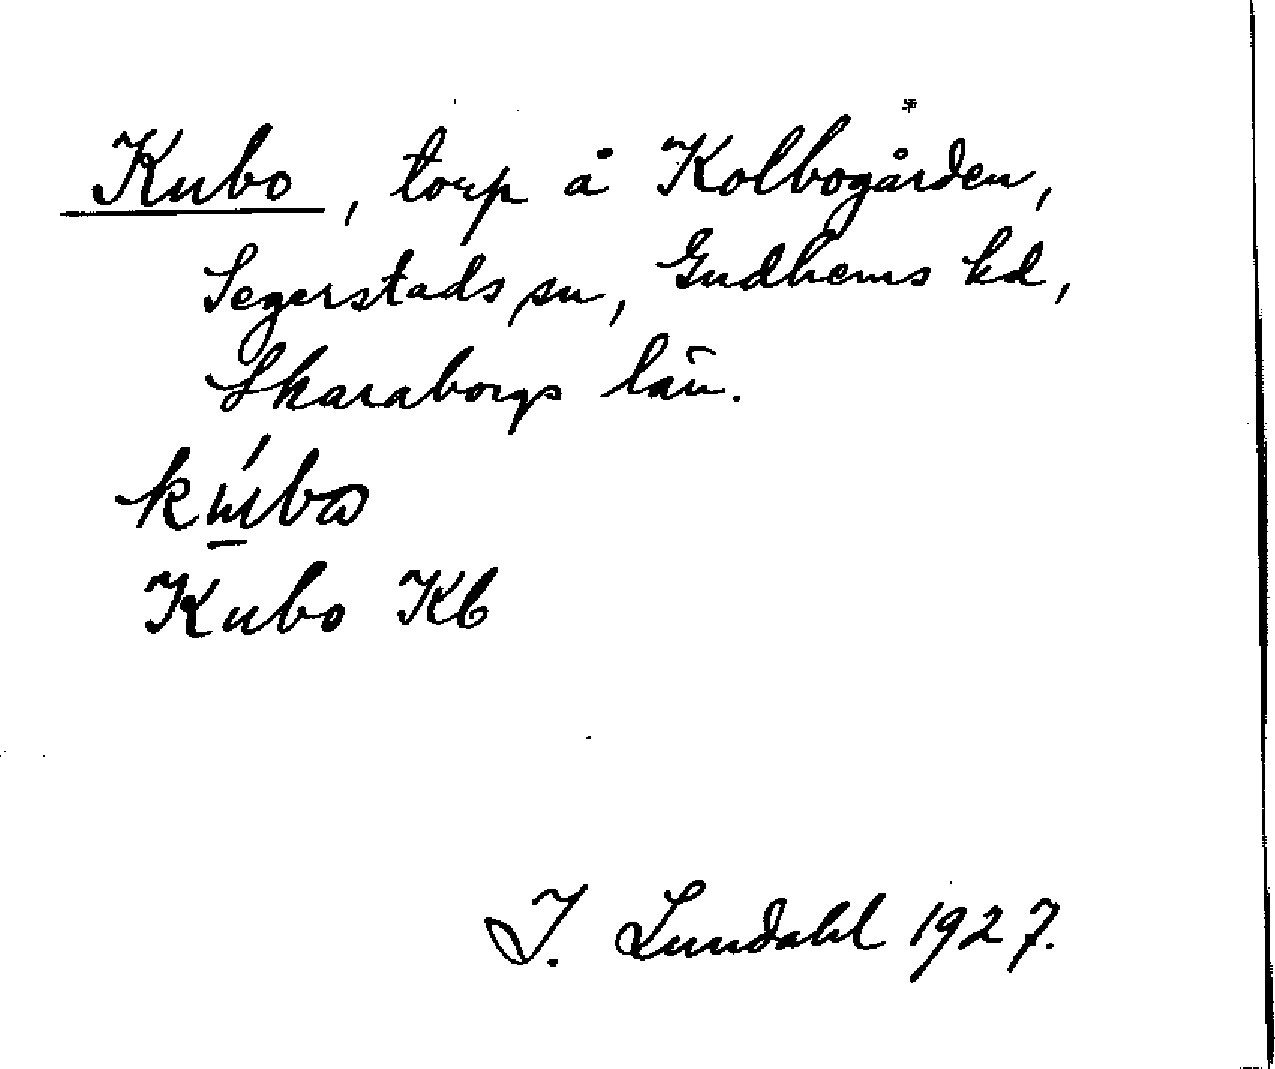 Kubo, torp å Kolbogården,
Segerstads sn, Gudhems hd,
Skaraborgs län.
Kubo Kb
I. Lundahl 1927.